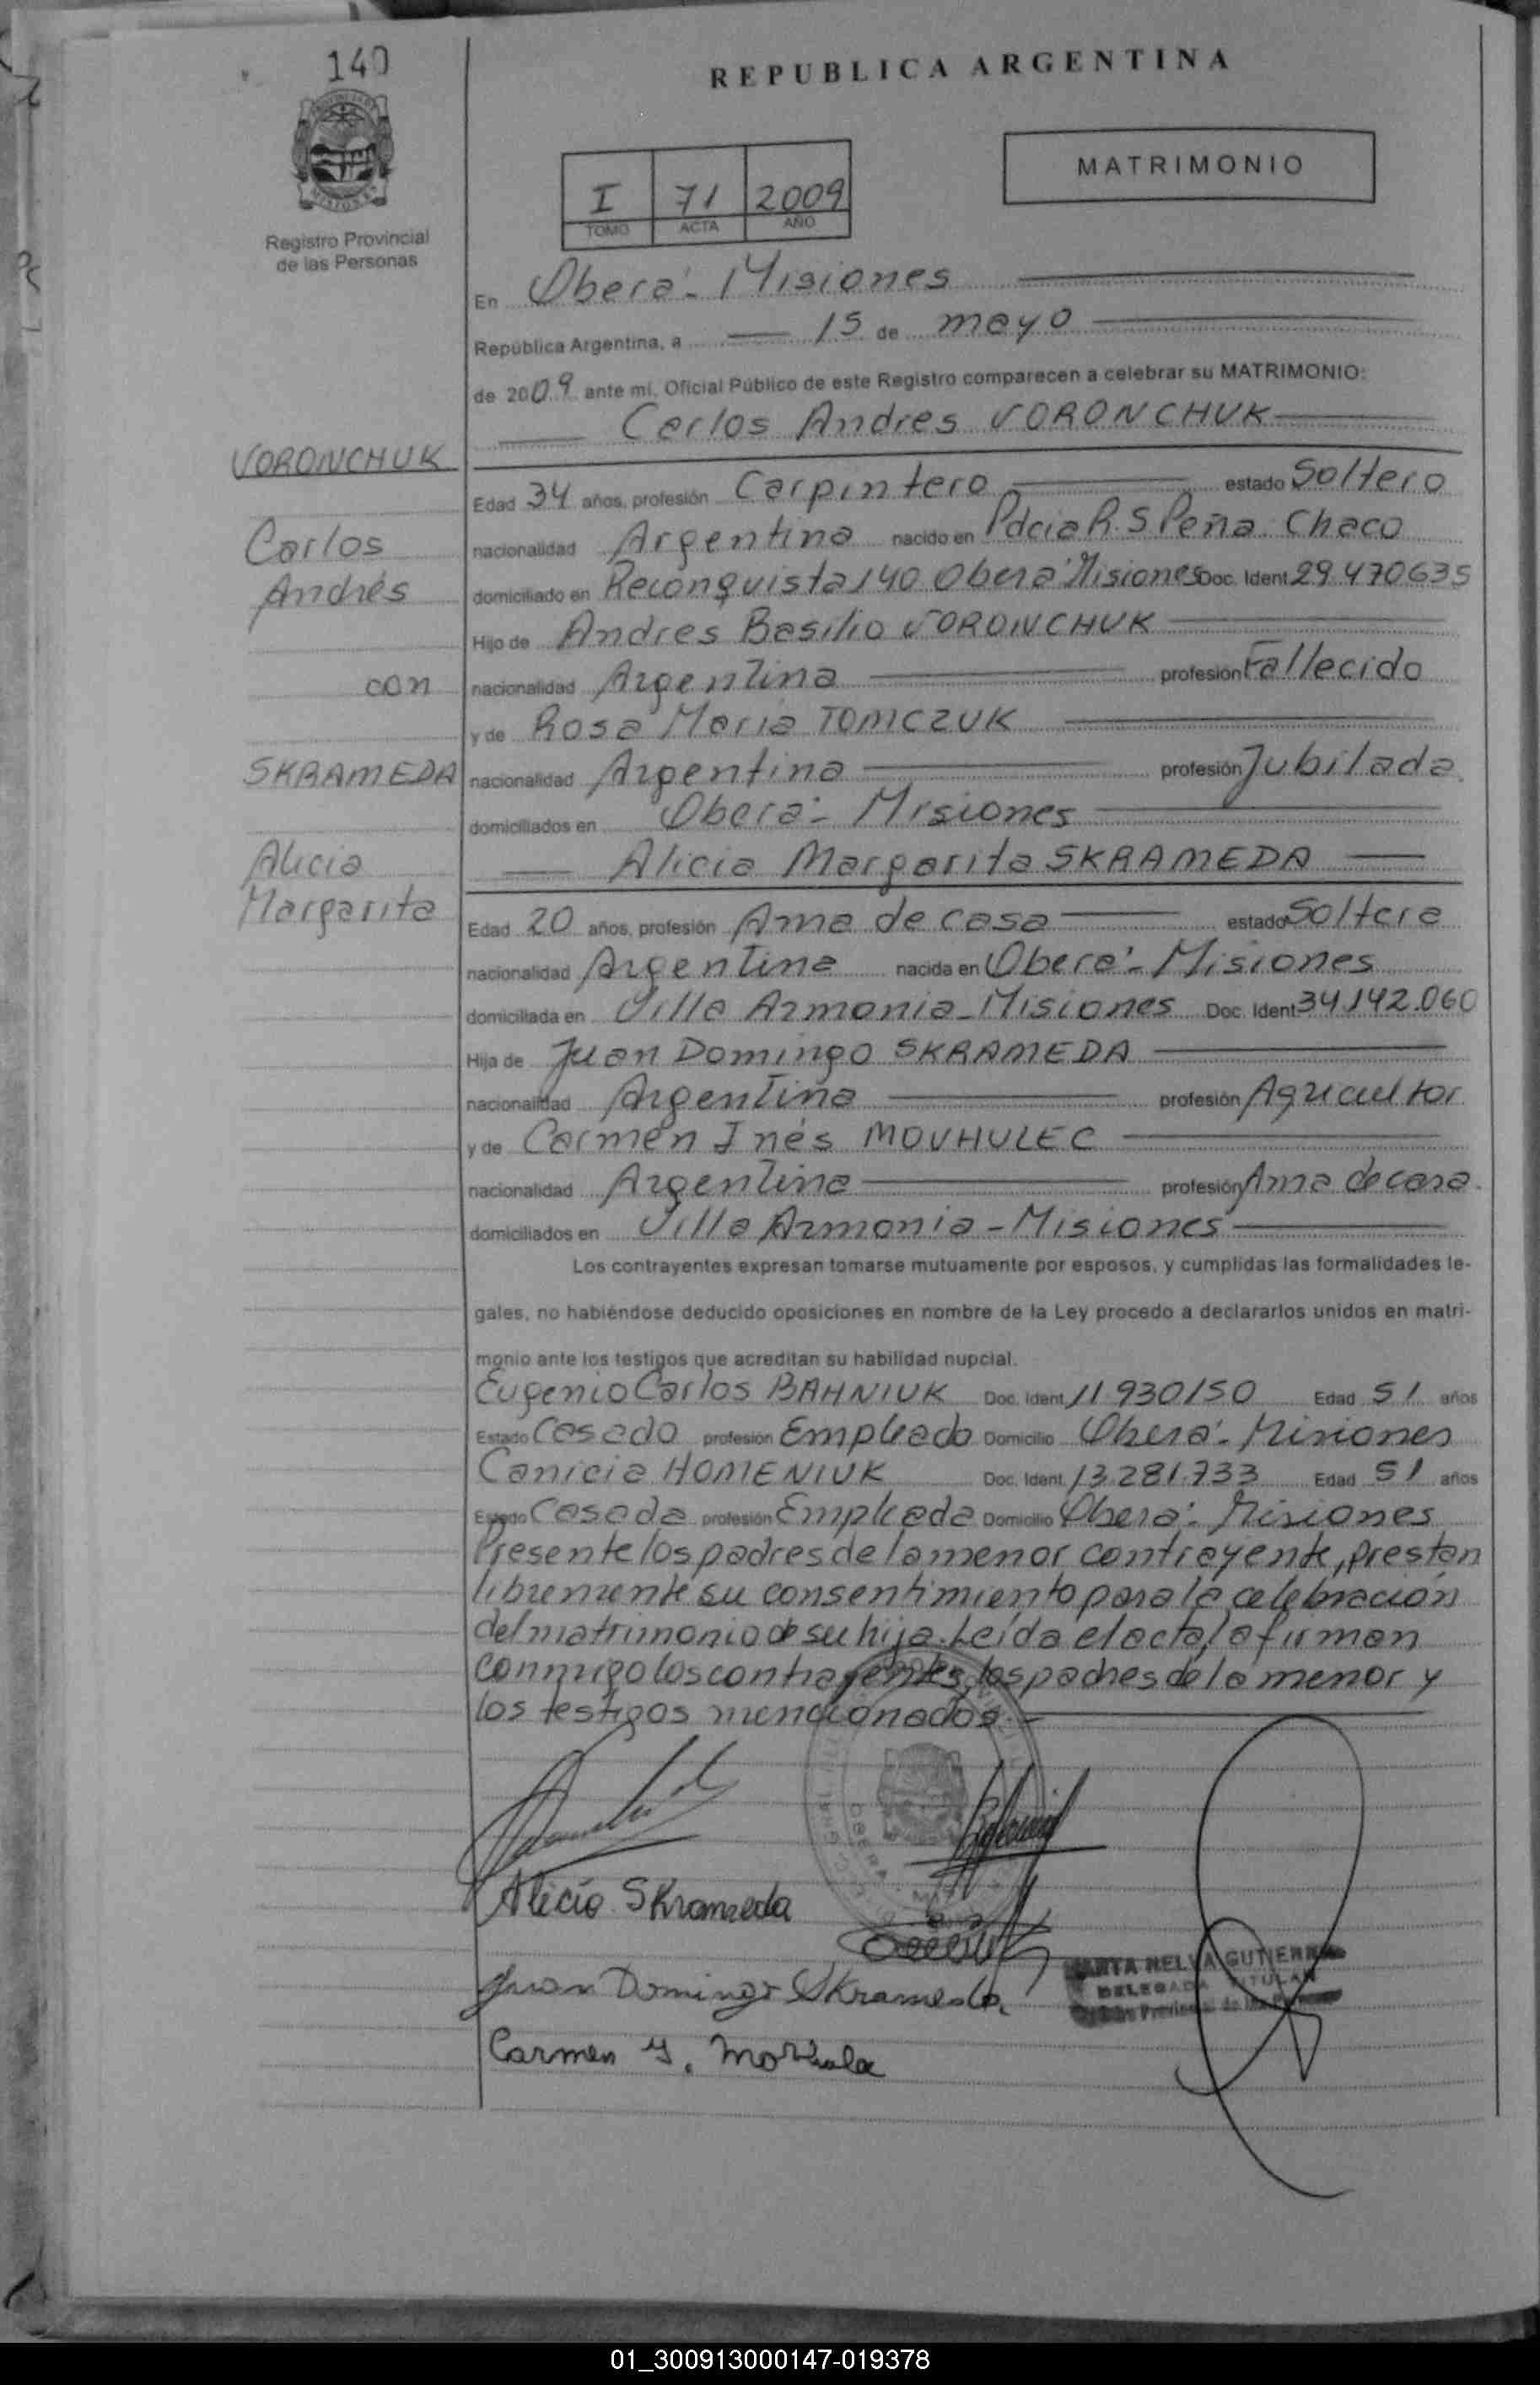 140
REPUBLICA ARGENTINA
MISIONES
Registro Provincial
de las Personas
I 71 2009
TOMO ACTA AÑO
MATRIMONIO
En Oberá - Misiones
República Argentina, a 15 de mayo
de 2009 ante mí, Oficial Público de este Registro comparecen a celebrar su MATRIMONIO:
Carlos Andres VORONCHUK
VORONCHUK
Edad 34 años, profesión Carpintero estado Soltero
Carlos
nacionalidad Argentina nacido en Pdcia R. S. Peña. Chaco
Andrés
domiciliado en Reconquista 140 Oberá Misiones Doc. Ident. 29.470635
Hijo de Andres Basilio VORONCHUK
con
nacionalidad Argentina profesión Fallecido
y de Rosa Maria TOMCZUK
SKRAMEDA
nacionalidad Argentina profesión Jubilada
domiciliados en Oberá - Misiones
Alicia
Alicia Margarita SKRAMEDA
Margarita
Edad 20 años, profesión Ama de casa estado Soltera
nacionalidad Argentina nacida en Oberá - Misiones
domiciliada en Villa Armonia - Misiones Doc. Ident. 34.142.060
Hija de Juan Domingo SKRAMEDA
nacionalidad Argentina profesión Agricultor
y de Carmen Inés MOVHULEC
nacionalidad Argentina profesión Ama de casa
domiciliados en Villa Armonia - Misiones
Los contrayentes expresan tomarse mutuamente por esposos, y cumplidas las formalidades le-
gales, no habiéndose deducido oposiciones en nombre de la Ley procedo a declararlos unidos en matri-
monio ante los testigos que acreditan su habilidad nupcial.
Eugenio Carlos BAHNIUK Doc. Ident. 11.930150 Edad 51 años
Estado Casado profesión Empleado Domicilio Oberá - Misiones
Canicia HOMENIUK Doc. Ident. 13.281.733 Edad 51 años
Estado Casada profesión Empleada Domicilio Oberá - Misiones
Presente los padres de la menor contrayente, prestan
libremente su consentimiento para la celebración
del matrimonio de su hija. Leída el acta, la firman
conmigo los contrayentes, los padres de la menor y
los testigos mencionados.
Alicia Skrameda
Juan Domingo Skrameda
MARTA NELVA GUTIERREZ
DELEGADA TITULAR
Carmen Y.
01_300913000147-019378